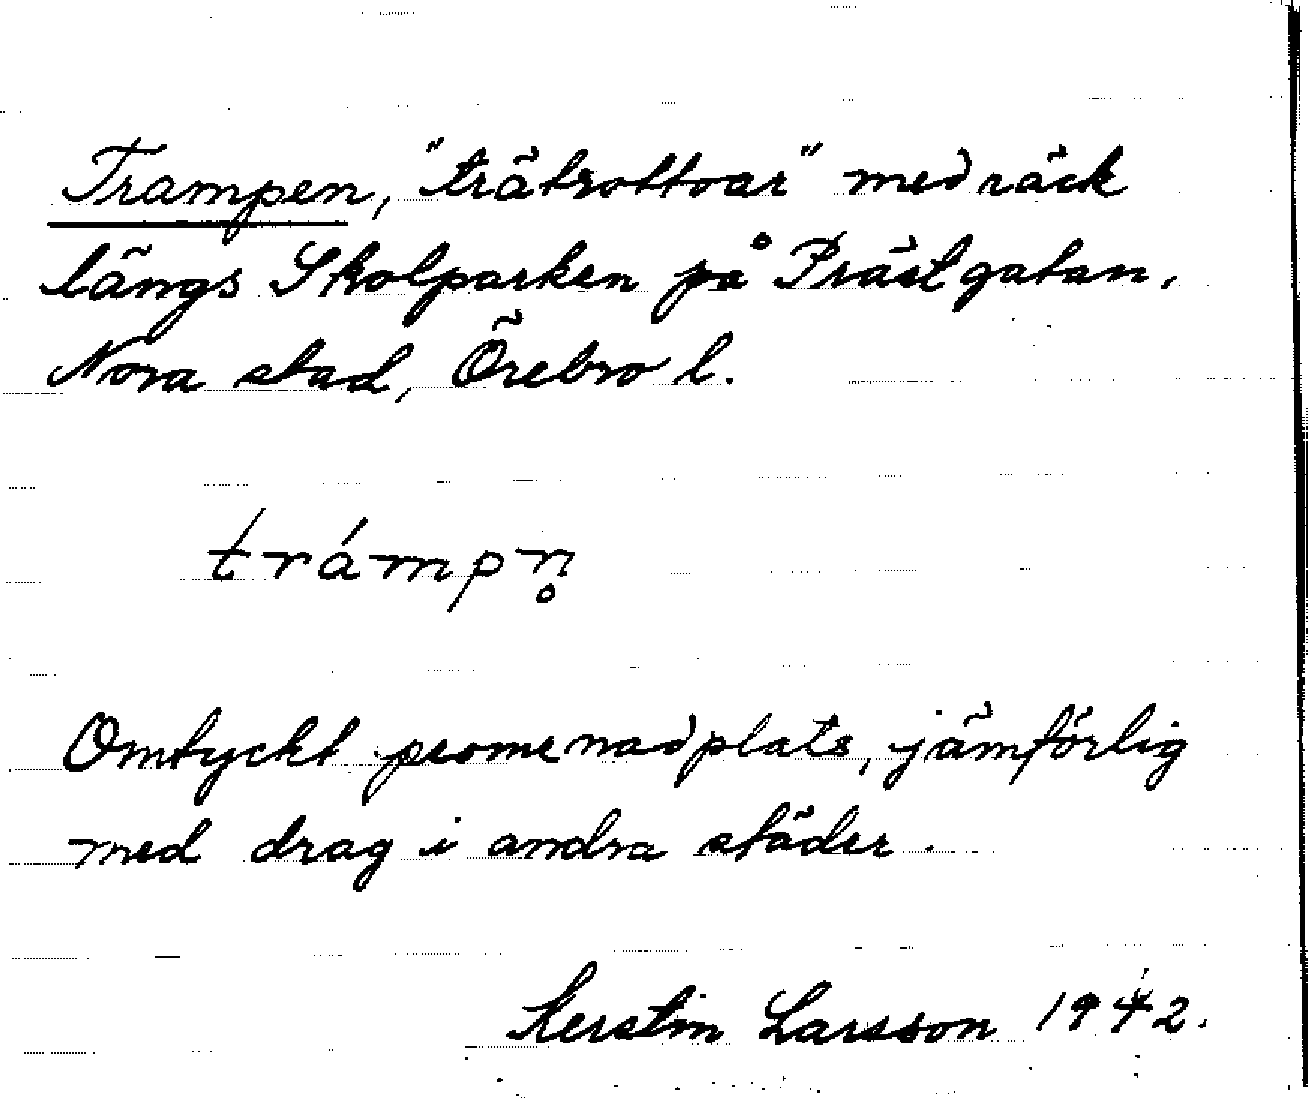 Trampen, "trätrottoar" med räck
längs Skolparken på Prästgatan.
Nora stad, Örebro l.
trámpn̥
Omtyckt promenadplats, jämförlig
med drag i andra städer.
Kerstin Larsson 1942.